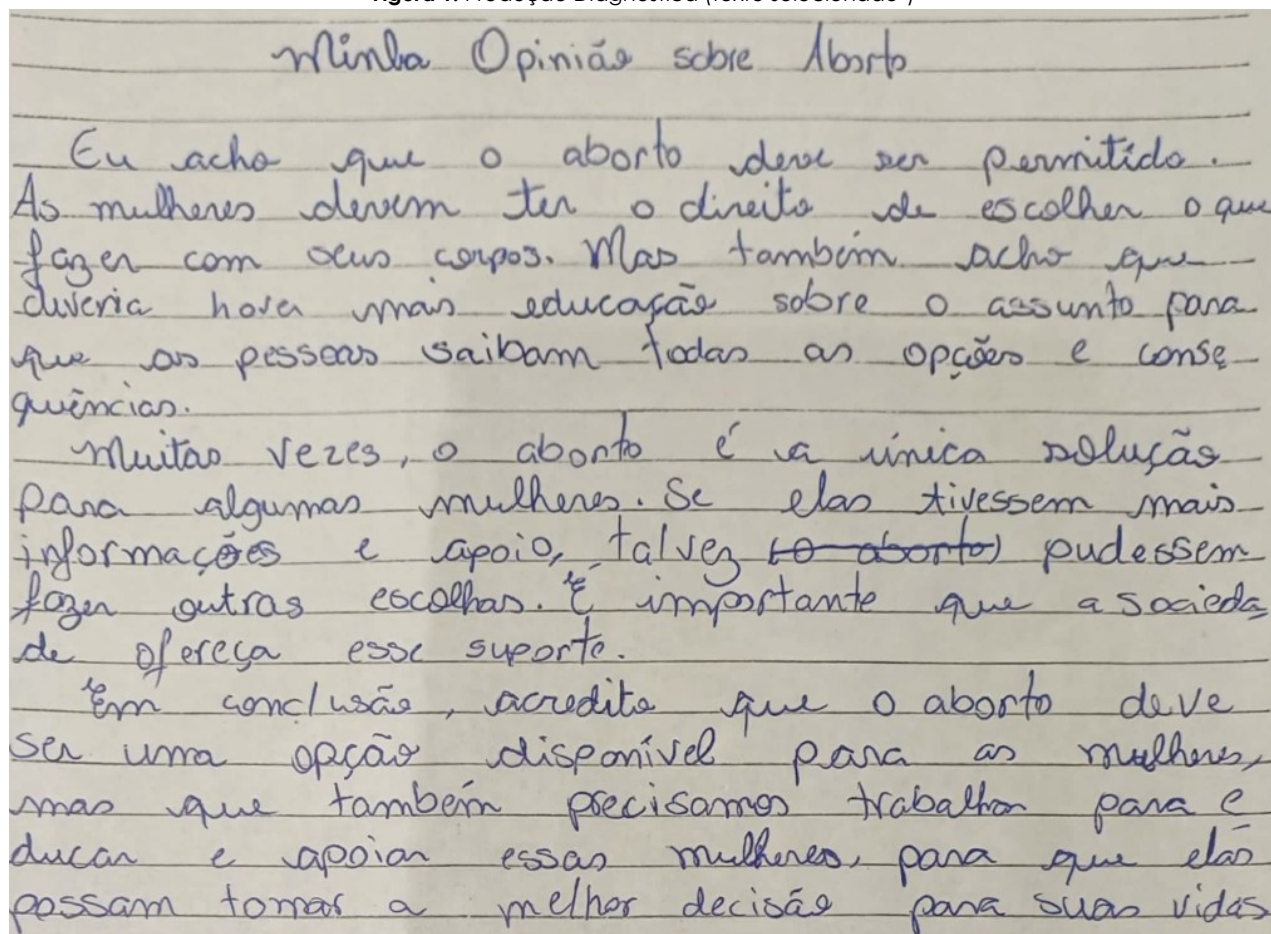 Figura 1. Produção Diagnóstica (texto selecionado)
Minha Opinião sobre Aborto
Eu acho que o aborto deve ser permitido.
As mulheres devem ter o direito de escolher o que
fazer com seus corpos. Mas também acho que
deveria haver mais educação sobre o assunto para
que as pessoas saibam todas as opções e conse
quências.
Muitas vezes, o aborto é a única solução
para algumas mulheres. Se elas tivessem mais
informações e apoio, talvez (o aborto) pudessem
fazer outras escolhas. É importante que a socieda
de ofereça esse suporte.
Em conclusão, acredito que o aborto deve
ser uma opção disponível para as mulheres,
mas que também precisamos trabalhar para e
ducar e apoiar essas mulheres, para que elas
possam tomar a melhor decisão para suas vidas